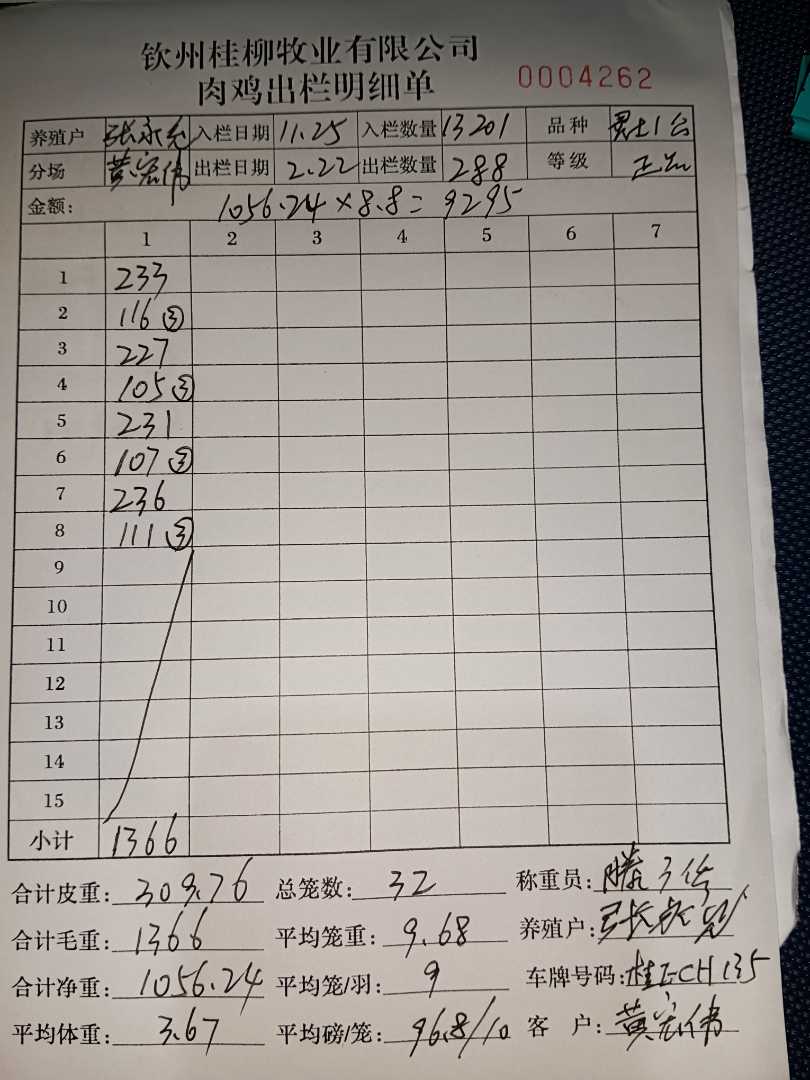 钦州桂柳牧业有限公司
肉鸡出栏明细单 0004262
养殖户 入栏日期 11.25 入栏数量 13201 品种
分场 黄宏伟 出栏日期 2.22 出栏数量 288 等级
金额: 1056.24×8.8=9295
1 2 3 4 5 6 7
1 233
2 116 ③
3 227
4 105 ③
5 231
6 107 ③
7 236
8 111 ③
9
10
11
12
13
14
15
小计 1366
合计皮重: 309.76 总笼数: 32 称重员:
合计毛重: 1366 平均笼重: 9.68 养殖户:
合计净重: 1056.24 平均笼/羽: 9 车牌号码: 桂ECH135
平均体重: 3.67 平均磅/笼: 96.8/10 客户: 黄宏伟